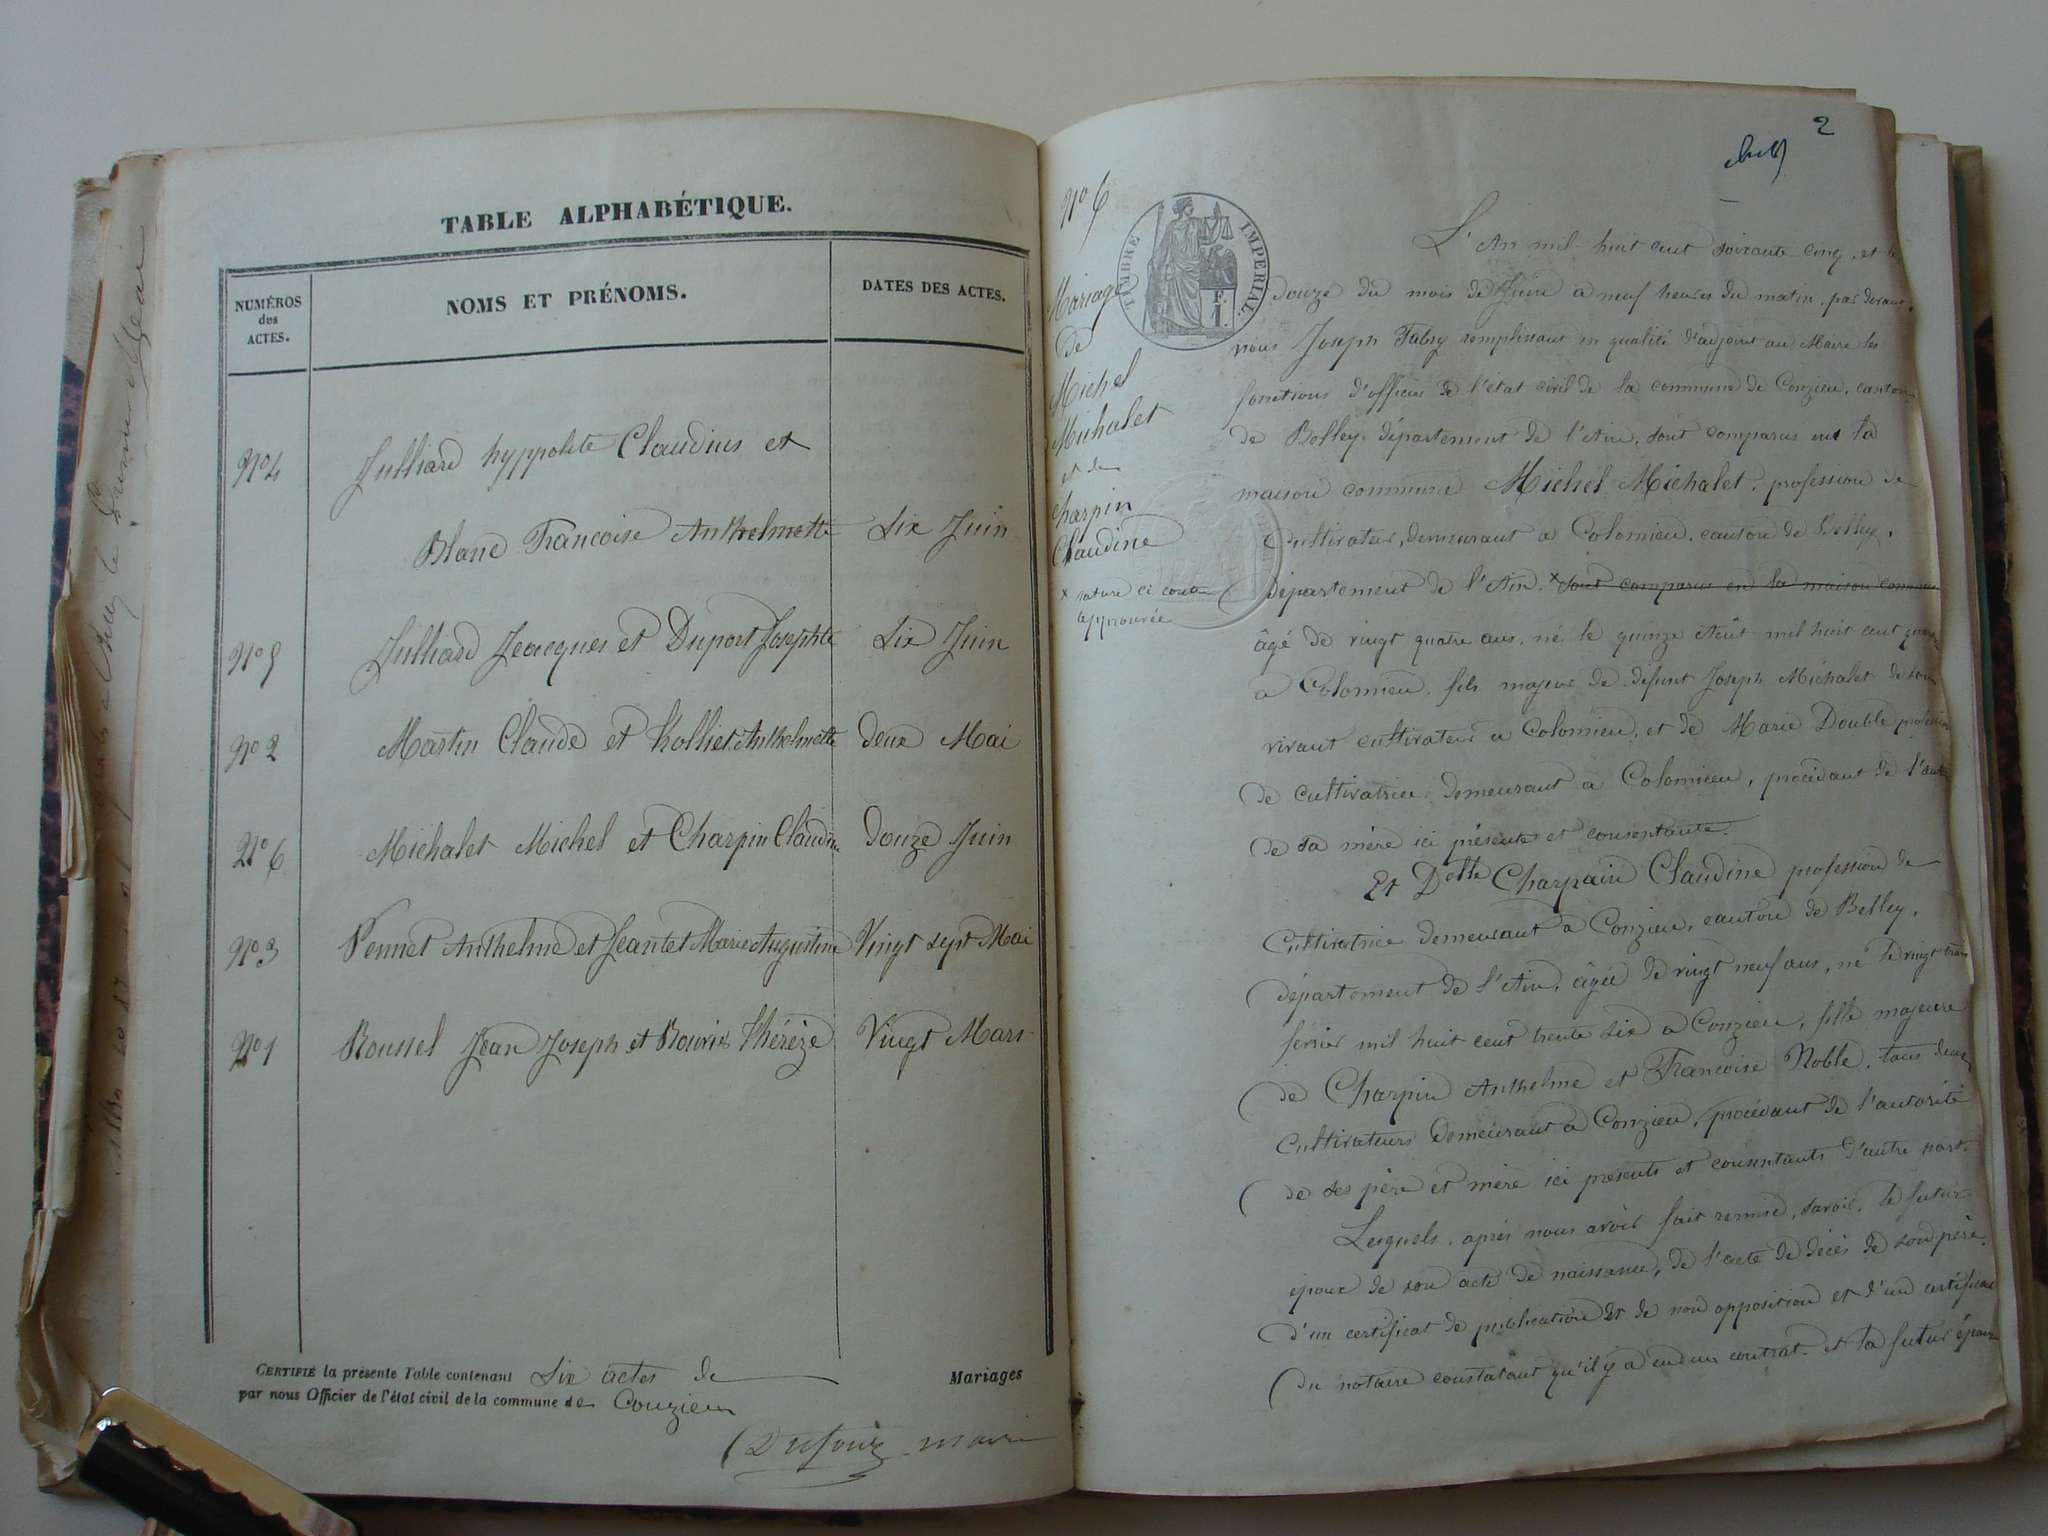 TABLE ALPHABÉTIQUE.
NUMÉROS
des
ACTES.
NOMS ET PRÉNOMS.
DATES DES ACTES.
N° 4 Julliard hyppolite Claudius et
Blanc Francoise Anthelmette Six Juin
N° 5 Julliard Jeacques et Duport Josephte Six Juin
N° 2 Martin Claude et Rollier Anthelmette deux Mai
N° 6 Michalet Michel et Charpin Claudine douze Juin
N° 3 Pennet Anthelme et Jeantet Marie Augustine Vingt sept Mai
N° 1 Roussel Jean Joseph et Bouvier Thérèze Vingt Mars
CERTIFIÉ la présente Table contenant Six actes de Mariages
par nous Officier de l'état civil de la commune de Conzieu
Dufour maire
2
N° 6
TIMBRE IMPÉRIAL
F.
1.
Mariage
de
Michel
Michalet
et de
Charpin
Claudine
x rature ci contre
approuvée
L'An mil huit cent soixante cinq, et le
douze du mois de Juin a neuf heures du matin, par devant
nous Joseph Fabry remplissant en qualité d'adjoint au Maire les
fonctions d'officier de l'état civil de la commune de Conzieu, canton
de Belley, département de l'Ain, sont comparus en la
maison commune Michel Michalet, profession de
Cultivateur, demeurant a Colomieu, canton de Belley,
département de l'Ain, x sont comparus en la maison commune
âgé de vingt quatre ans, né le quinze Août mil huit cent quarante
a Colomieu, fils majeur de défunt Joseph Michalet de son
vivant cultivateur a Colomieu, et de Marie Double profession
de cultivatrice demeurant a Colomieu, procédant de l'autorité
de sa mère ici présente et consentante.
Et Delle Charpain Claudine profession de
Cultivatrice demeurant a Conzieu, canton de Belley,
département de l'Ain, âgée de vingt neuf ans, né le vingt trois
février mil huit cent trente six a Conzieu, fille majeure
de Charpin Anthelme et Francoise Noble, tous deux
Cultivateurs demeurant a Conzieu, procédant de l'autorité
de ses père et mère ici présents et consentants d'autre part.
Lesquels, après nous avoir fait remise, savoir, le futur
époux de son acte de naissance, de l'acte de décès de son père,
d'un certificat de publication et de non opposition et d'un certificat
du notaire constatant qu'il y a eu un contrat. et la future épouse